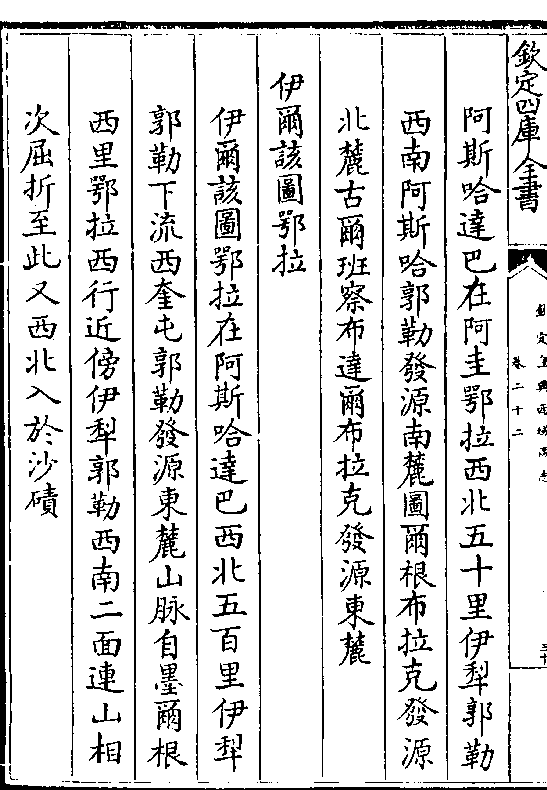 欽定四庫全書
欽定皇輿西域圖志
卷二十二
阿斯哈達巴在阿圭鄂拉西北五十里伊犁郭勒
西南阿斯哈郭勒發源南麓圖爾根布拉克發源
北麓古爾班察布達爾布拉克發源東麓
伊爾該圖鄂拉
伊爾該圖鄂拉在阿斯哈達巴西北五百里伊犁
郭勒下流西奎屯郭勒發源東麓山脉自墨爾根
西里鄂拉西行近傍伊犁郭勒西南二面連山相
次屈折至此又西北入於沙磧